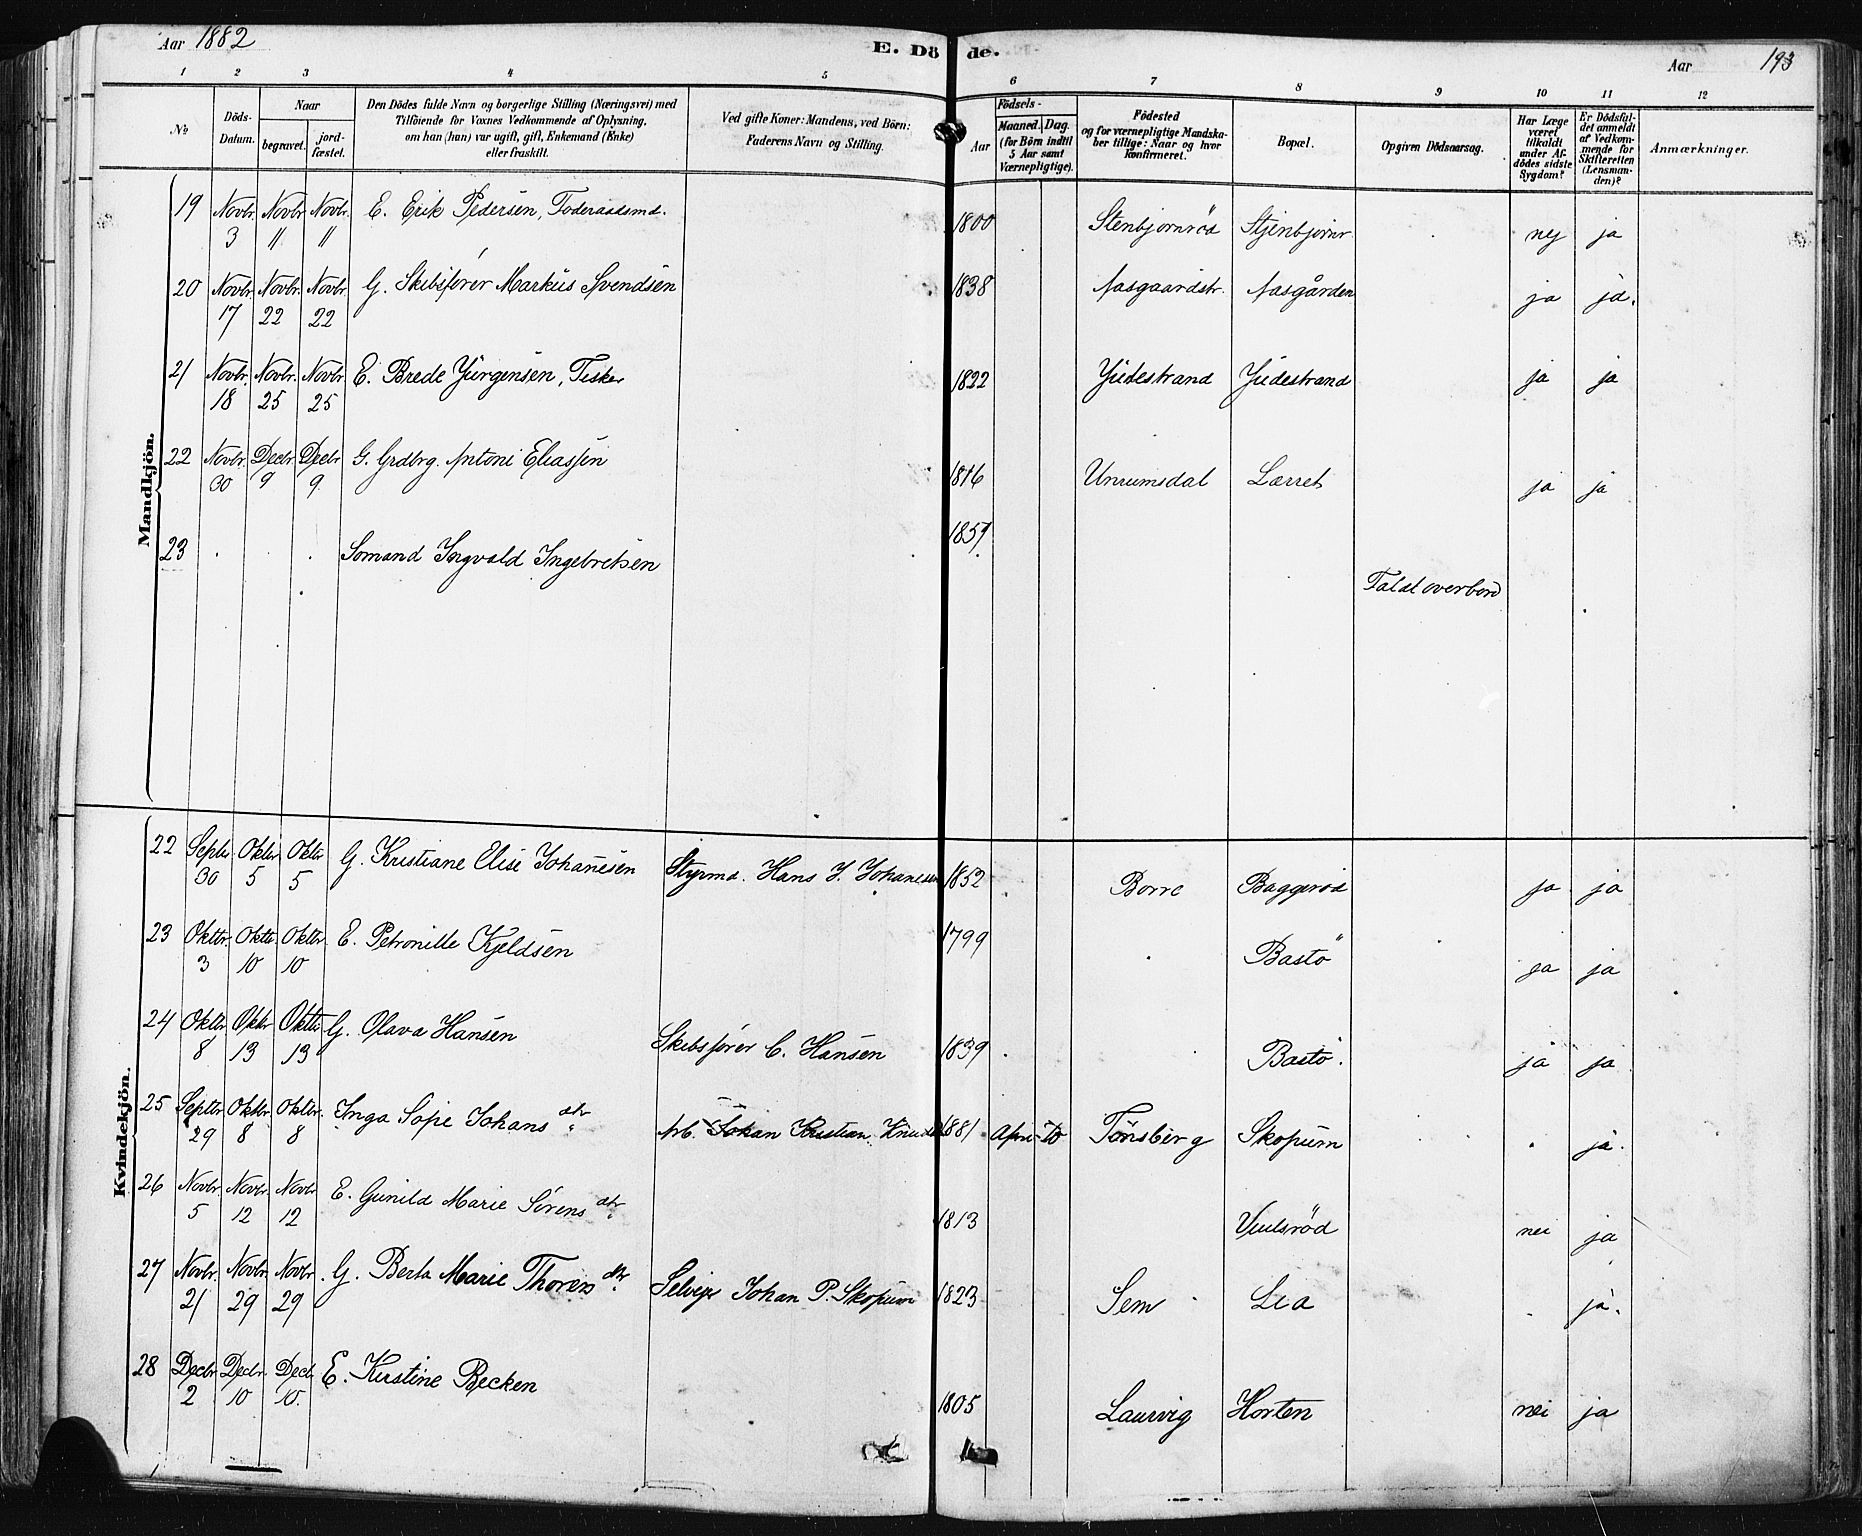 Aar 1882 E. Dö de. Aar 193
1 2 3 4 5 6 7 8 9 10 11 12
№
Döds-Datum.
Naar
begravet. jordfæstet.
Den Dödes fulde Navn og borgerlige Stilling (Næringsvei) med
Tilföiende for Voxnes Vedkommende af Oplysning,
om han (hun) var ugift, gift, Enkemand (Enke)
eller fraskilt.
Ved gifte Koner: Mandens, ved Börn:
Faderens Navn og Stilling.
Födsels-
Aar Maaned. Dag.
(for Börn indtil
5 Aar samt
Værnepligtige).
Födested
og for værnepligtige Mandska-
ber tillige: Naar og hvor
konfirmeret.
Bopæl.
Opgiven Dödsaarsag.
Har Læge
været
tilkaldt
under Af-
dödes sidste
Sygdom?
Er Dödsfal-
det anmeldt
af Vedkom-
mende for
Skifteretten
(Lensman-
den)?
Anmærkninger.
Mandkjön.
19 Novbr. 3 Novbr 11 Novbr. 11 E. Erik Pedersen, Foderaadsmd. 1800 Stenbjørnrød Stjenbjørnr nej ja
20 Novbr. 17 Novbr. 22 Novbr. 22 G. Skibsfører Markus Svendsen 1838 Aasgaardstr. Aasgården ja ja.
21 Novbr. 18 Novbr. 25 Novbr 25 E. Brede Jürgensen, Fisker 1822 Judestrand Judestrand ja ja
22 Novbr. 30 Decbr 9 Decbr 9. G. Grdbrg. Antoni Eliassen 1816 Unrumsdal Lærret ja ja
23 Sømand Ingvald Ingebretsen 1857 Faldt overbord
Kvindekjön.
22 Septbr. 30 Oktbr 5 Oktbr 5 G. Kristiane Elise Johanesen Styrmd. Hans J. Johanesen 1852 Borre Baggerød ja ja
23 Oktbr. 3 Oktbr. 10 Oktbr. 10 E. Petronille Kjeldsen 1799 Bastø ja ja
24 Oktbr 8 Oktbr 13 Oktbr 13 G. Olava Hansen Skibsfører C. Hansen 1839 Bastø. ja ja
25 Septbr 29 Oktbr. 8 Oktbr. 8 Inga Sofie Johans dtr. Arb. Johan Kristian Knuds 1881 April 10 Tønsberg Skopum ja.
26 Novbr. 5 Novbr. 12 Novbr 12 E. Gunild Marie Sørens dtr. 1813 nei ja
27 Novbr. 21 Novbr. 29 Novbr. 29 G. Berta Marie Thorens dtr. Selveier Johan P. Skopum 1823 Sem Lia ja.
28 Decbr 2 Decbr. 10 Decb. 10. E. Kirstine Becken 1805 Laurvig Horten nei ja